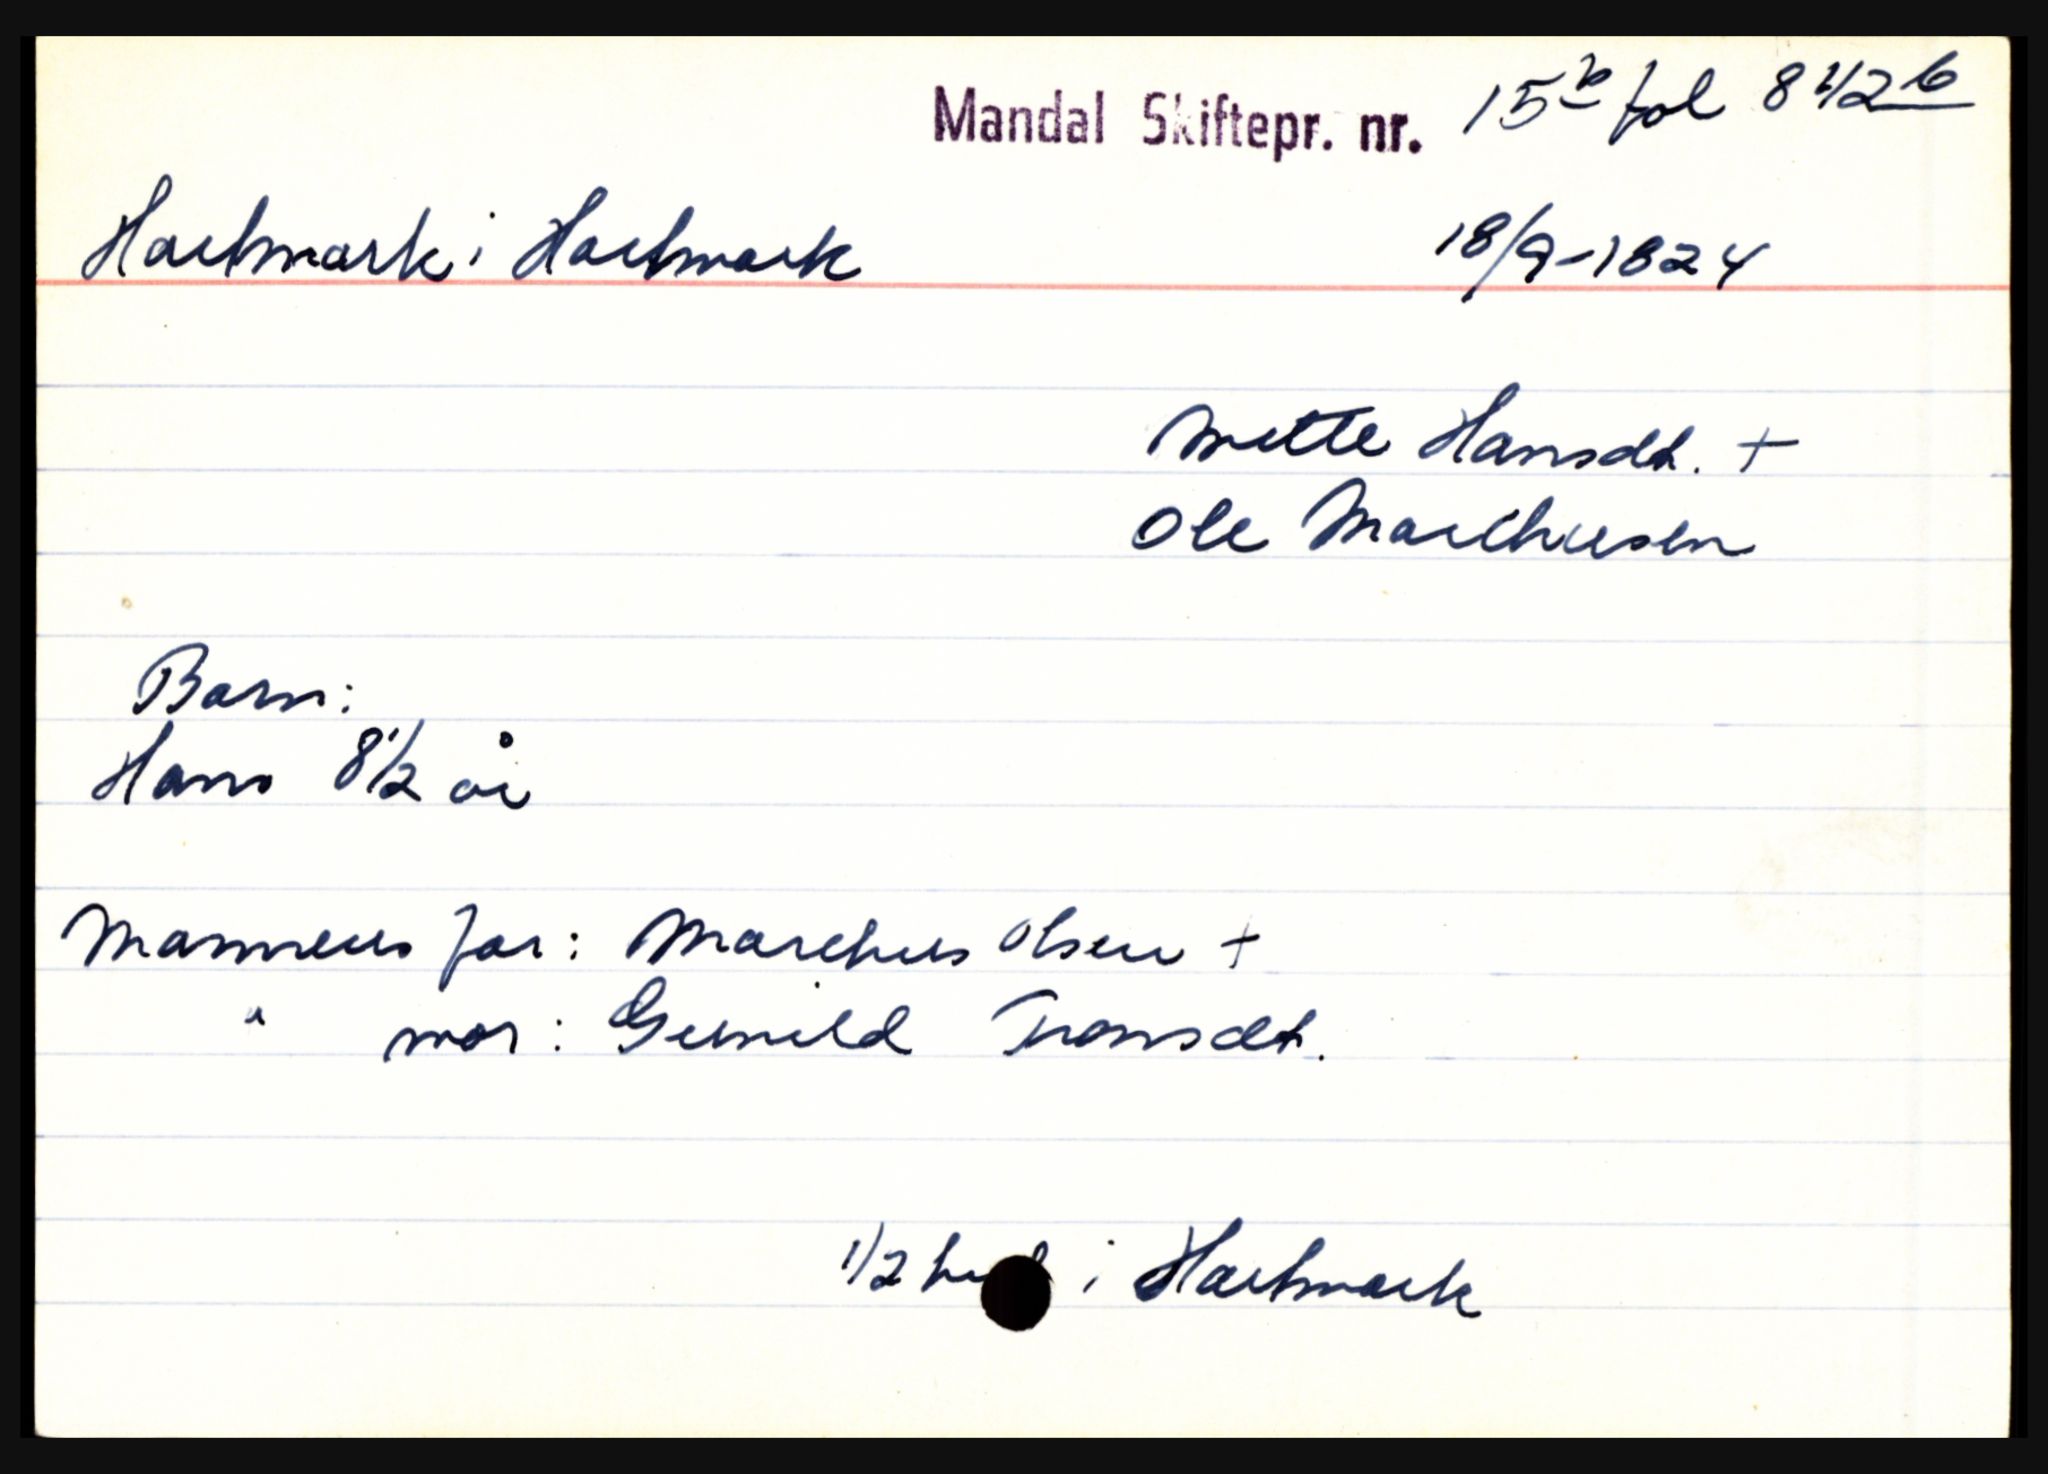 Mandal Skiftepr. nr. 15b fol 842b
Hartmark i Hartmark 18/9-1824
Mette Hansdt. +
Ole Marchusen
Barn:
Hans 8 1/2 år
Mannens far: Marchus Olsen +
" mor: Gunild Tronsdt.
1/2 hud i Hartmark